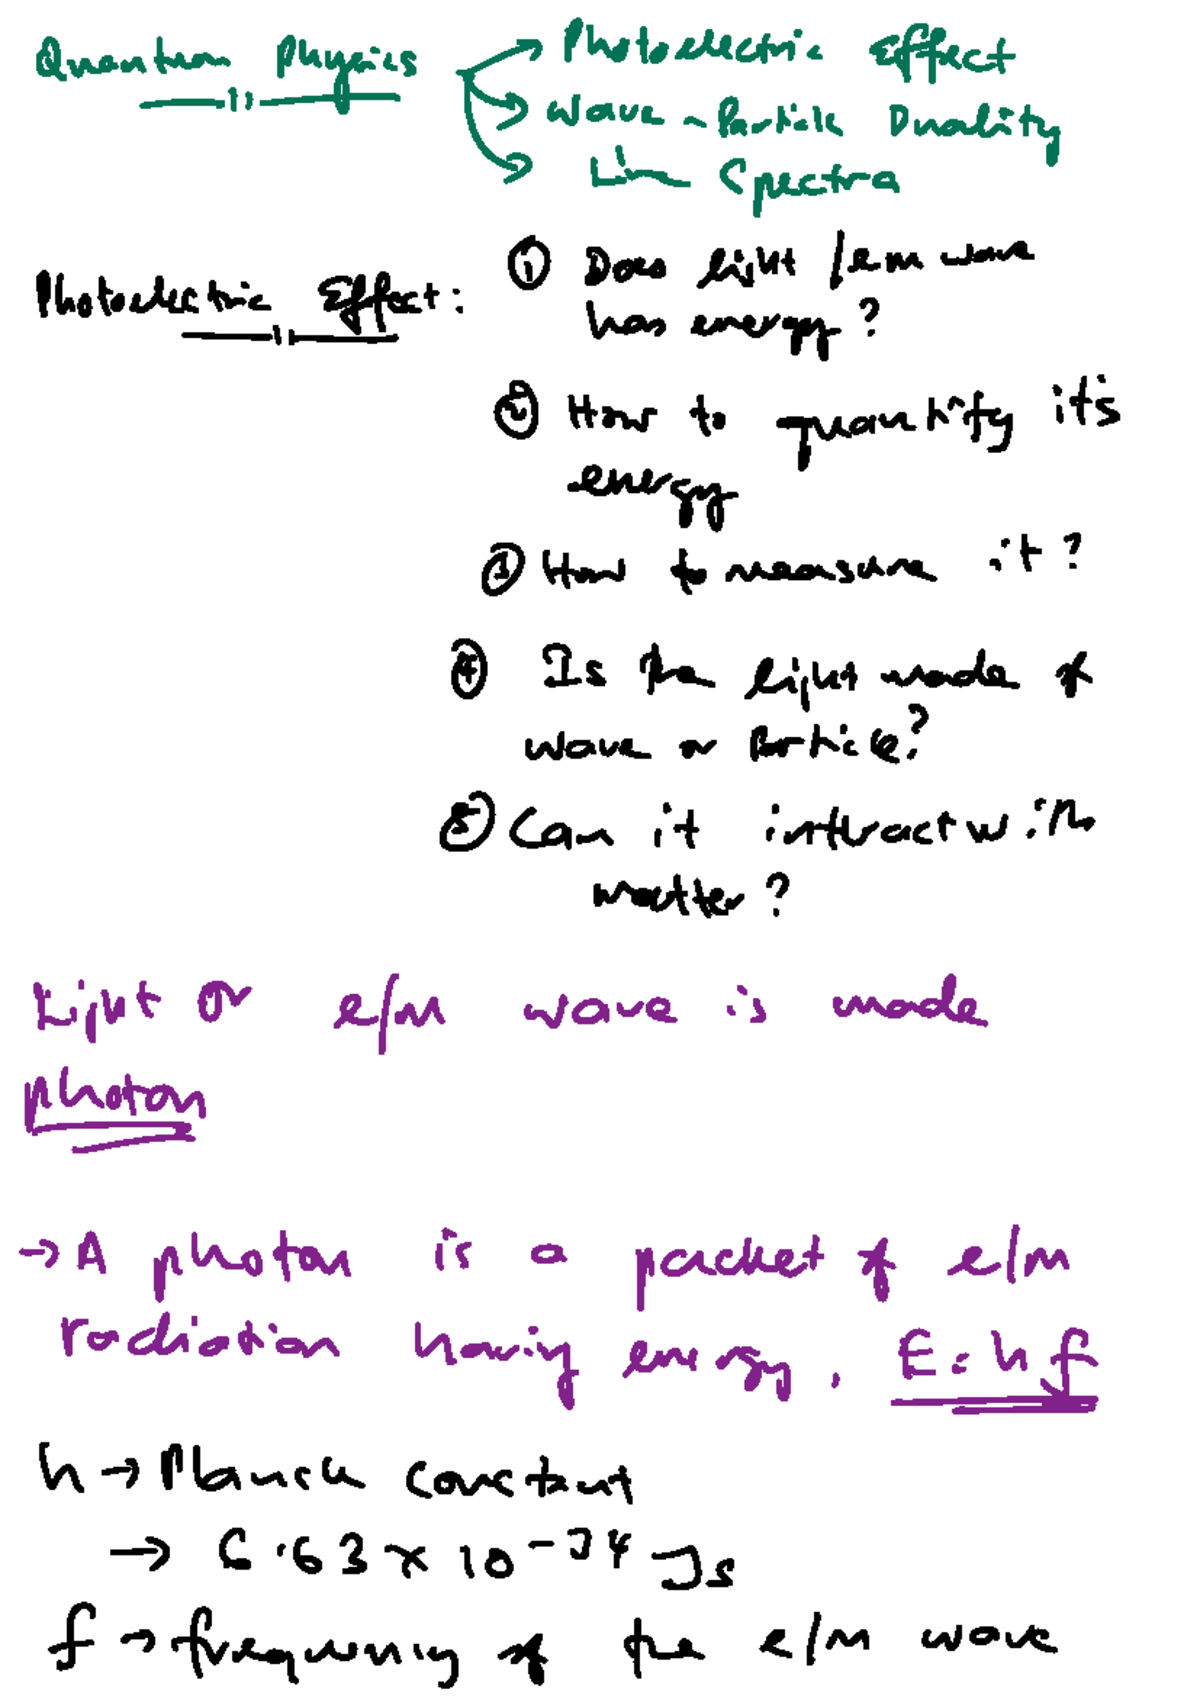 Quantum Physics → Photoelectric Effect
→ Wave-Particle Duality
→ Line Spectra
Photoelectric Effect:
① Does light /em wave
has energy?
② How to quantify it's
energy
③ How to measure it?
④ Is the light made of
wave or Particle?
⑤ Can it interact with
matter?
Light or e/m wave is made
photon
→ A photon is a packet of e/m
radiation having energy, E = hf
h → Planck constant
→ 6.63 x 10^-34 Js
f → frequency of the e/m wave